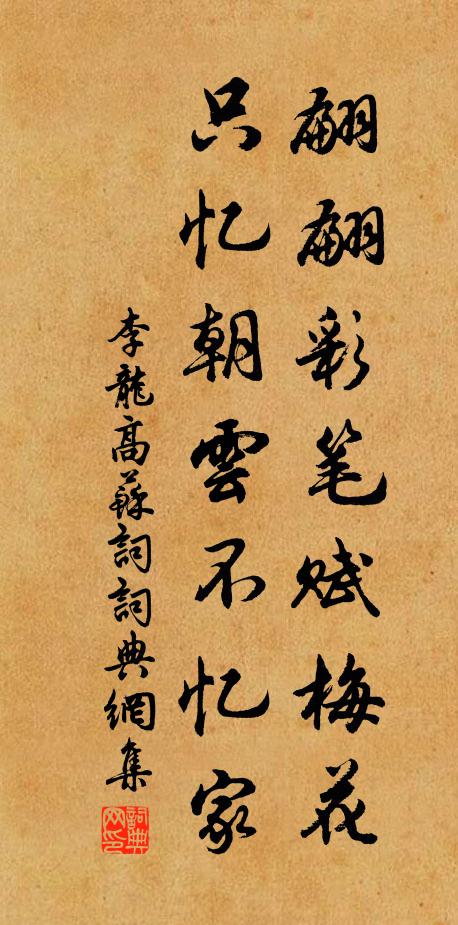 翩翩彩笔赋梅花
只忆朝雲不忆家
李龍高蘇詞詞典網集
詞典网印